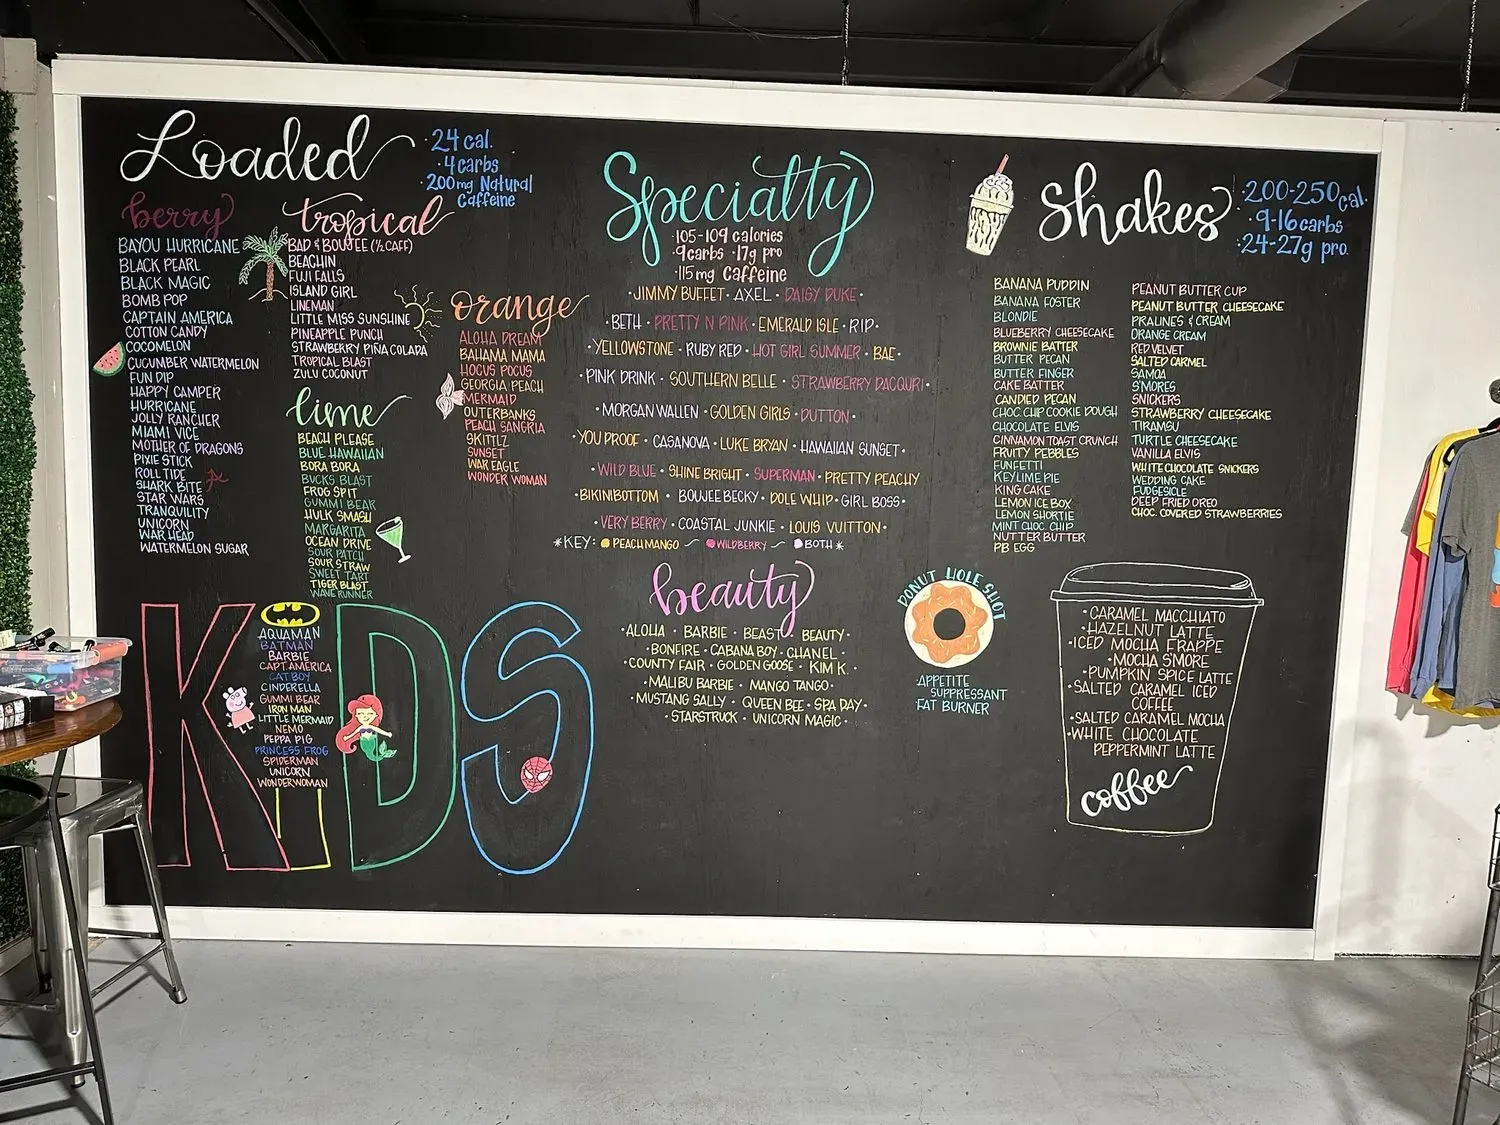 Loaded
24 cal.
· 4 carbs
· 200mg Natural
Caffeine
berry
BAYOU HURRICANE
BLACK PEARL
BLACK MAGIC
BOMB POP
CAPTAIN AMERICA
COTTON CANDY
COCOMELON
CUCUMBER WATERMELON
FUN DIP
HAPPY CAMPER
HURRICANE
JOLLY RANCHER
MIAMI VICE
MOTHER OF DRAGONS
PIXIE STICK
ROLL TIDE
SHARK BITE
STAR WARS
TRANQUILITY
UNICORN
WAR HEAD
WATERMELON SUGAR
tropical
BAD & BOUJEE (½ CAFF)
BEACHIN
FUJI FALLS
ISLAND GIRL
LINEMAN
LITTLE MISS SUNSHINE
PINEAPPLE PUNCH
STRAWBERRY PIÑA COLADA
TROPICAL BLAST
ZULU COCONUT
lime
BEACH PLEASE
BLUE HAWAIIAN
BORA BORA
BUCKS BLAST
FROG SPIT
GUMMI BEAR
HULK SMASH
MARGARITA
OCEAN DRIVE
SOUR PATCH
SOUR STRAW
SWEET TART
TIGER BLAST
WAVE RUNNER
orange
ALOHA DREAM
BAHAMA MAMA
HOCUS POCUS
GEORGIA PEACH
MERMAID
OUTERBANKS
PEACH SANGRIA
SKITTLZ
SUNSET
WAR EAGLE
WONDER WOMAN
KIDS
AQUAMAN
BATMAN
BARBIE
CAPT. AMERICA
CAT BOY
CINDERELLA
GUMMI BEAR
IRON MAN
LITTLE MERMAID
NEMO
PEPPA PIG
PRINCESS FROG
SPIDERMAN
UNICORN
WONDERWOMAN
Specialty
·105-109 calories
·9carbs ·17g pro
·115mg Caffeine
·JIMMY BUFFET · AXEL · DAISY DUKE·
·BETH · PRETTY N PINK · EMERALD ISLE · RIP·
·YELLOWSTONE · RUBY RED · HOT GIRL SUMMER · BAE·
·PINK DRINK · SOUTHERN BELLE · STRAWBERRY DACQURI·
·MORGAN WALLEN · GOLDEN GIRLS · DUTTON·
·YOU PROOF · CASANOVA · LUKE BRYAN · HAWAIIAN SUNSET·
·WILD BLUE · SHINE BRIGHT · SUPERMAN · PRETTY PEACHY
·BIKINI BOTTOM · BOUJEE BECKY · DOLE WHIP · GIRL BOSS·
·VERY BERRY · COASTAL JUNKIE · LOUIS VUITTON·
*KEY: PEACH MANGO ~ WILDBERRY ~ BOTH *
beauty
·ALOHA · BARBIE · BEAST · BEAUTY·
·BONFIRE · CABANA BOY · CHANEL·
·COUNTY FAIR · GOLDEN GOOSE · KIM K.·
·MALIBU BARBIE · MANGO TANGO·
·MUSTANG SALLY · QUEEN BEE · SPA DAY·
·STARSTRUCK · UNICORN MAGIC·
DONUT HOLE SHOT
·APPETITE
SUPPRESSANT
FAT BURNER
Shakes
·200-250 cal.
·9-16 carbs
·24-27g pro.
BANANA PUDDIN
BANANA FOSTER
BLONDIE
BLUEBERRY CHEESECAKE
BROWNIE BATTER
BUTTER PECAN
BUTTER FINGER
CAKE BATTER
CANDIED PECAN
CHOC CHIP COOKIE DOUGH
CHOCOLATE ELVIS
CINNAMON TOAST CRUNCH
FRUITY PEBBLES
FUNFETTI
KEY LIME PIE
KING CAKE
LEMON ICE BOX
LEMON SHORTIE
MINT CHOC. CHIP
NUTTER BUTTER
PB EGG
PEANUT BUTTER CUP
PEANUT BUTTER CHEESECAKE
PRALINES & CREAM
ORANGE CREAM
RED VELVET
SALTED CARMEL
SAMOA
S'MORES
SNICKERS
STRAWBERRY CHEESECAKE
TIRAMSU
TURTLE CHEESECAKE
VANILLA ELVIS
WHITE CHOCOLATE SNICKERS
WEDDING CAKE
FUDGESICLE
DEEP FRIED OREO
CHOC. COVERED STRAWBERRIES
·CARAMEL MACCHIATO
·HAZELNUT LATTE
·ICED MOCHA FRAPPE
·MOCHA S'MORE
·PUMPKIN SPICE LATTE
·SALTED CARAMEL ICED
COFFEE
·SALTED CARAMEL MOCHA
·WHITE CHOCOLATE
PEPPERMINT LATTE
coffee